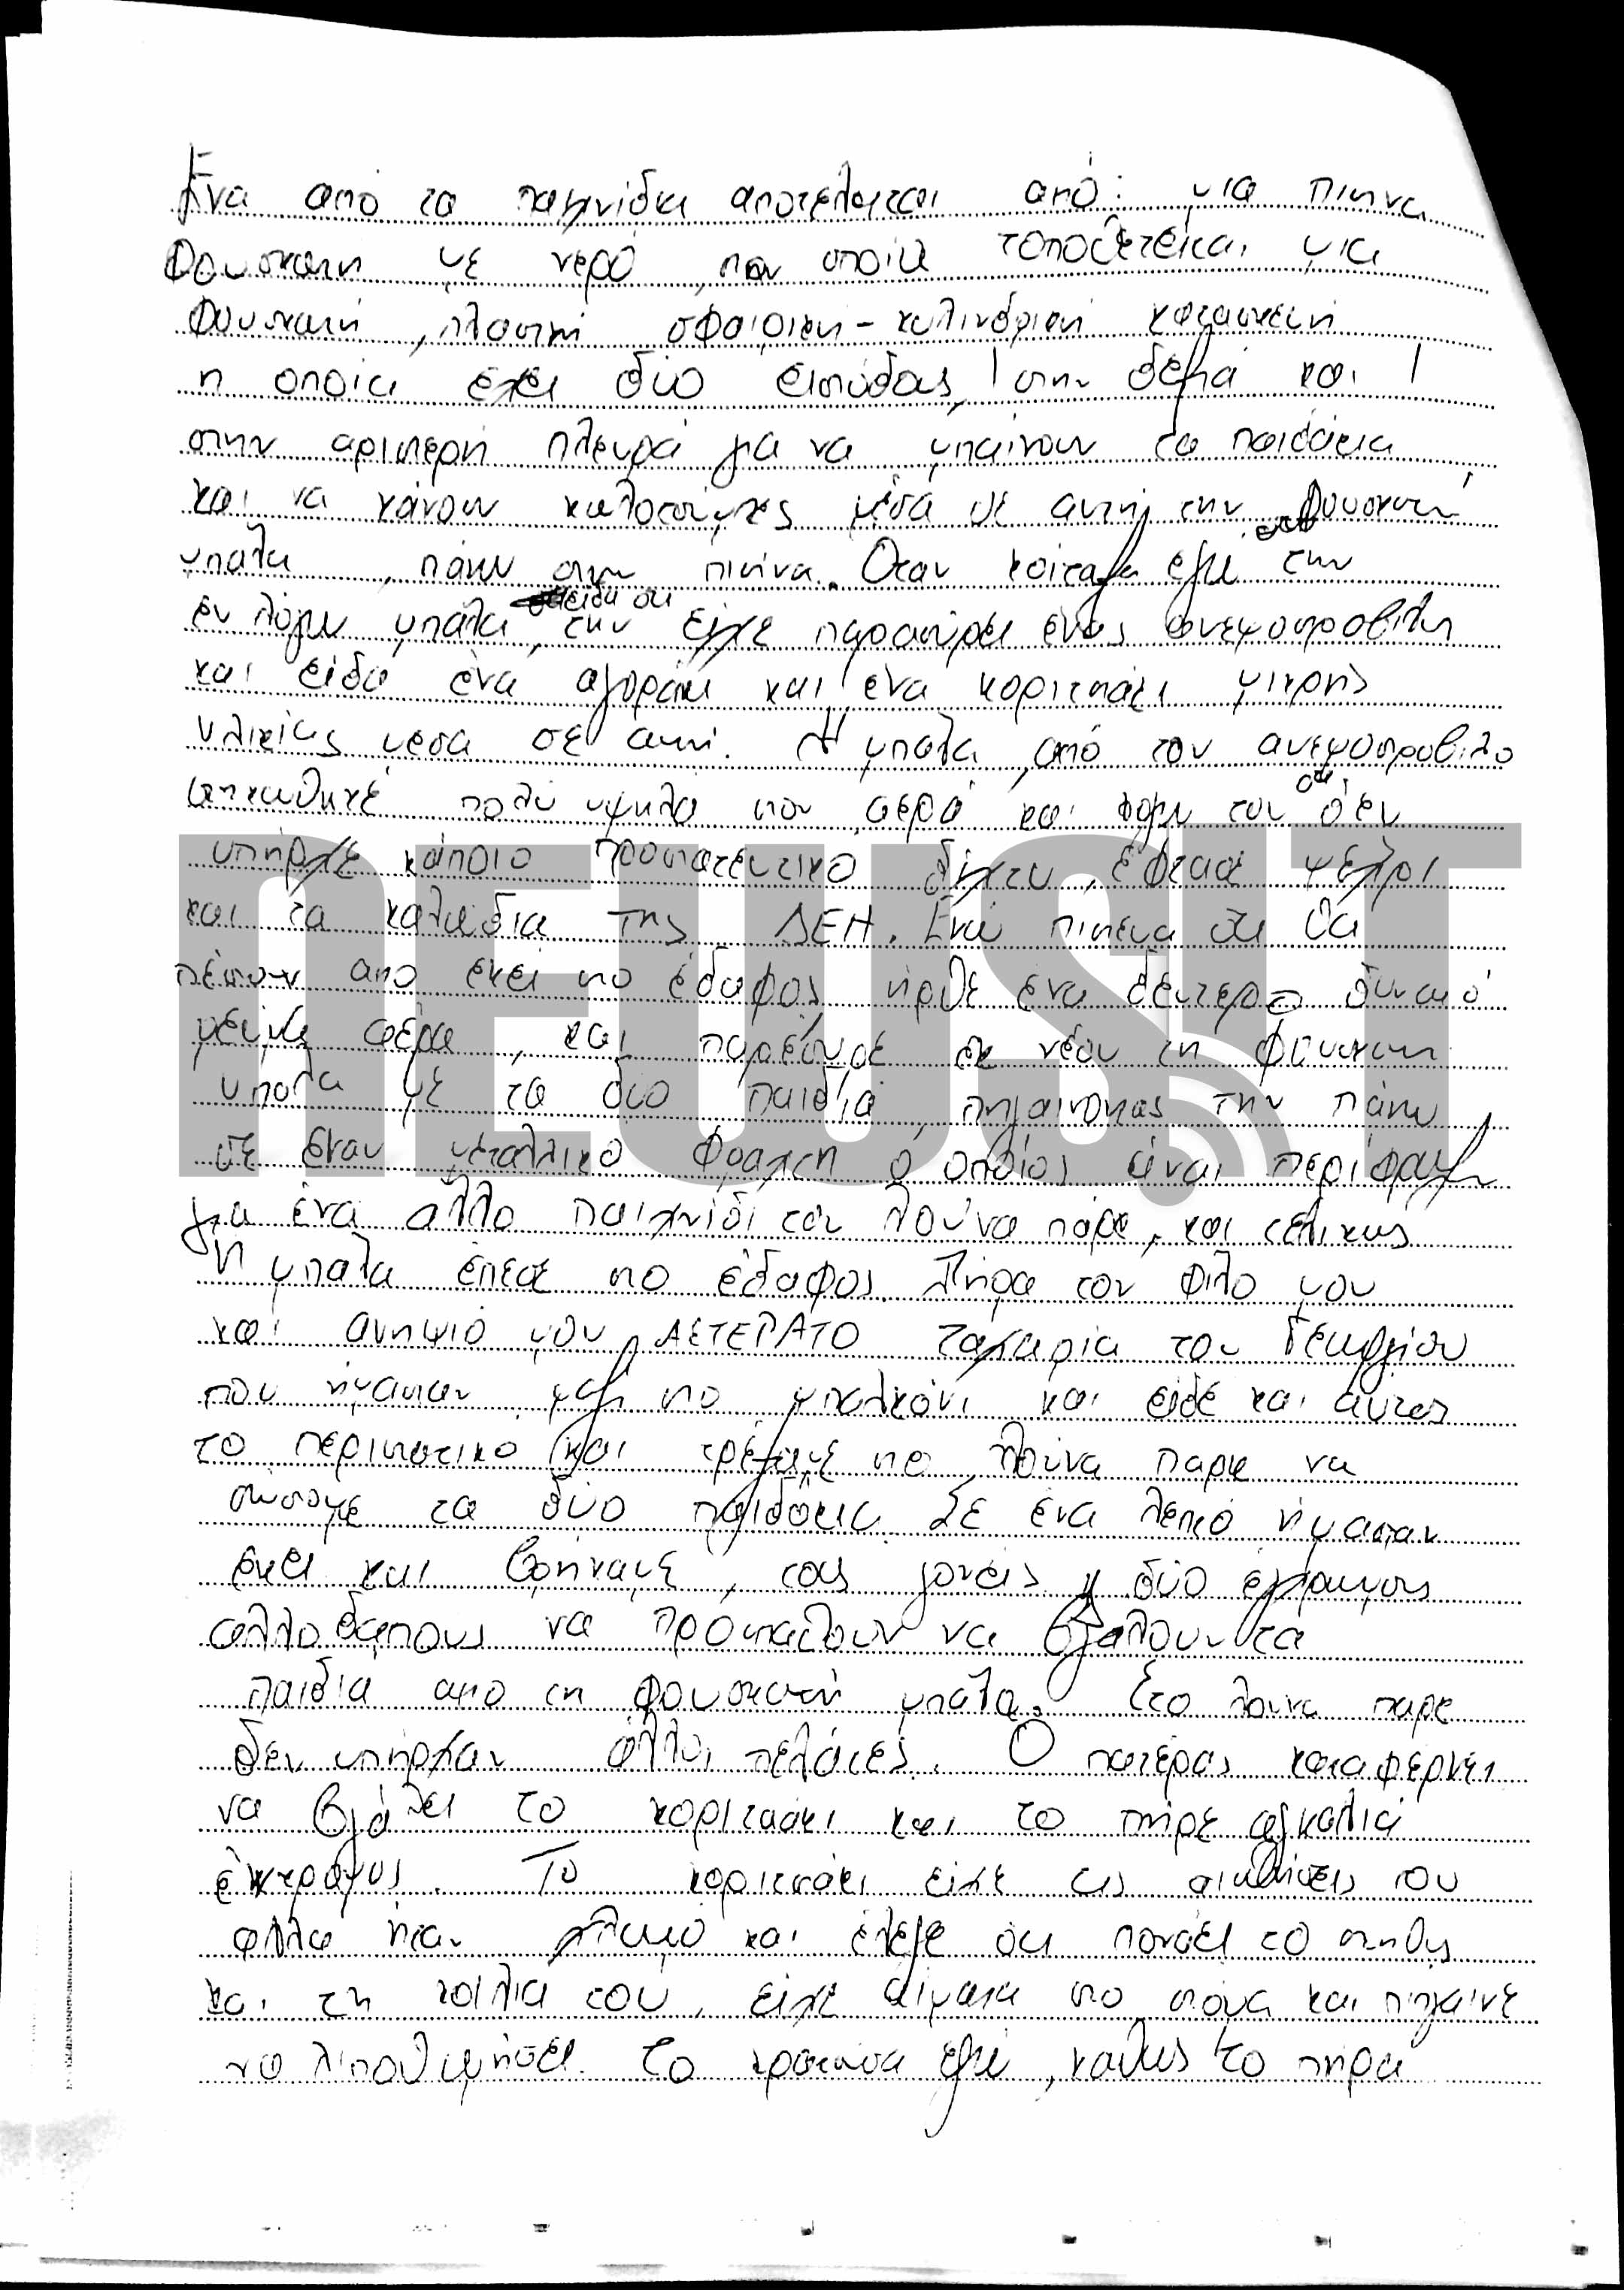 Ένα από τα παιχνίδια αποτελείται από: μια πισίνα
φουσκωτή με νερό, στην οποία τοποθετείται μια
φουσκωτή, πλαστική σφαιρική - κυλινδρική κατασκευή
η οποία έχει δύο εισόδους, 1 στην δεξιά και 1
στην αριστερή πλευρά για να μπαίνουν τα παιδάκια
και να κάνουν κωλοτούμπες μέσα σε αυτή την φουσκωτή
μπάλα, πάνω στην πισίνα. Όταν κοίταξα εγώ την
εν λόγω μπάλα, είδα ότι την είχε παρασύρει ένας ανεμοστρόβιλος
και είδα ένα αγοράκι και ένα κοριτσάκι μικρής
ηλικίας μέσα σε αυτή. Η μπάλα, από τον ανεμοστρόβιλο
σηκώθηκε πολύ ψηλά στον αέρα και λόγω του ότι δεν
υπήρχε κάποιο προστατευτικό δίχτυ, έφτασε μέχρι
και τα καλώδια της ΔΕΗ. Ενώ πίστεψα ότι θα
πέσουν από εκεί στο έδαφος, ήρθε ένα δεύτερο δυνατό
ρεύμα αέρα, και παρέσυρε εκ νέου τη φουσκωτή
μπάλα με τα δύο παιδιά, πηγαίνοντας την πάνω
σε έναν μεταλλικό φράχτη ο οποίος είναι περίφραξη
για ένα άλλο παιχνίδι του λούνα παρκ, και τελικώς
η μπάλα έπεσε στο έδαφος. Πήρα τον φίλο μου
και ανηψιό μου ΛΕΤΕΡΑΤΟ Ζαχαρία του Γεωργίου
που ήμασταν μαζί στο μπαλκόνι και είδε και αυτός
το περιστατικό και τρέξαμε στο λούνα παρκ να
σώσουμε τα δύο παιδάκια. Σε ένα λεπτό ήμασταν
εκεί και βρήκαμε, τους γονείς δύο έγχρωμους
αλλοδαπούς να προσπαθούν να βγάλουν τα
παιδιά από τη φουσκωτή μπάλα. Στο λούνα παρκ
δεν υπήρχαν άλλοι πελάτες. Ο πατέρας καταφέρνει
να βγάλει το κοριτσάκι και το πήρε αγκαλιά
έντρομος. Το κοριτσάκι είχε τις αισθήσεις του
αλλά ήταν χλωμό και έλεγε ότι πονάει το στήθος
και τη κοιλιά του, είχε αίματα στο στόμα και πήγαινε
να λιποθυμήσει. Το κρατούσα εγώ, καθώς το πήρα
NEWSIT